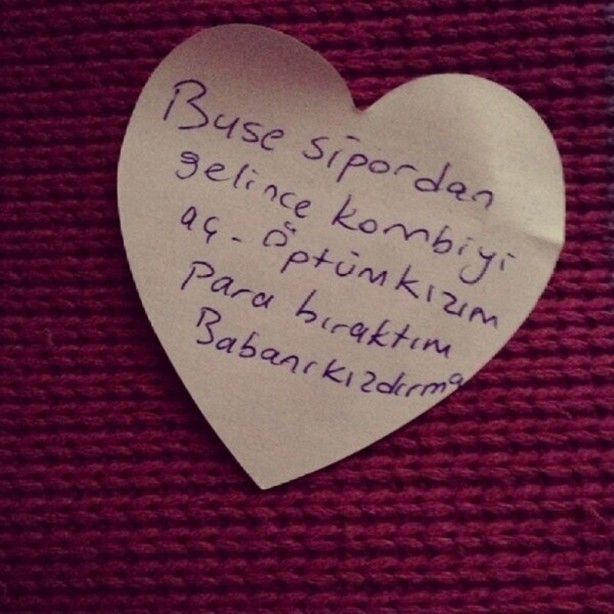 Buse sipordan
gelince kombiyi
aç. Öptüm kızım
para bıraktım
Babanı kızdırma